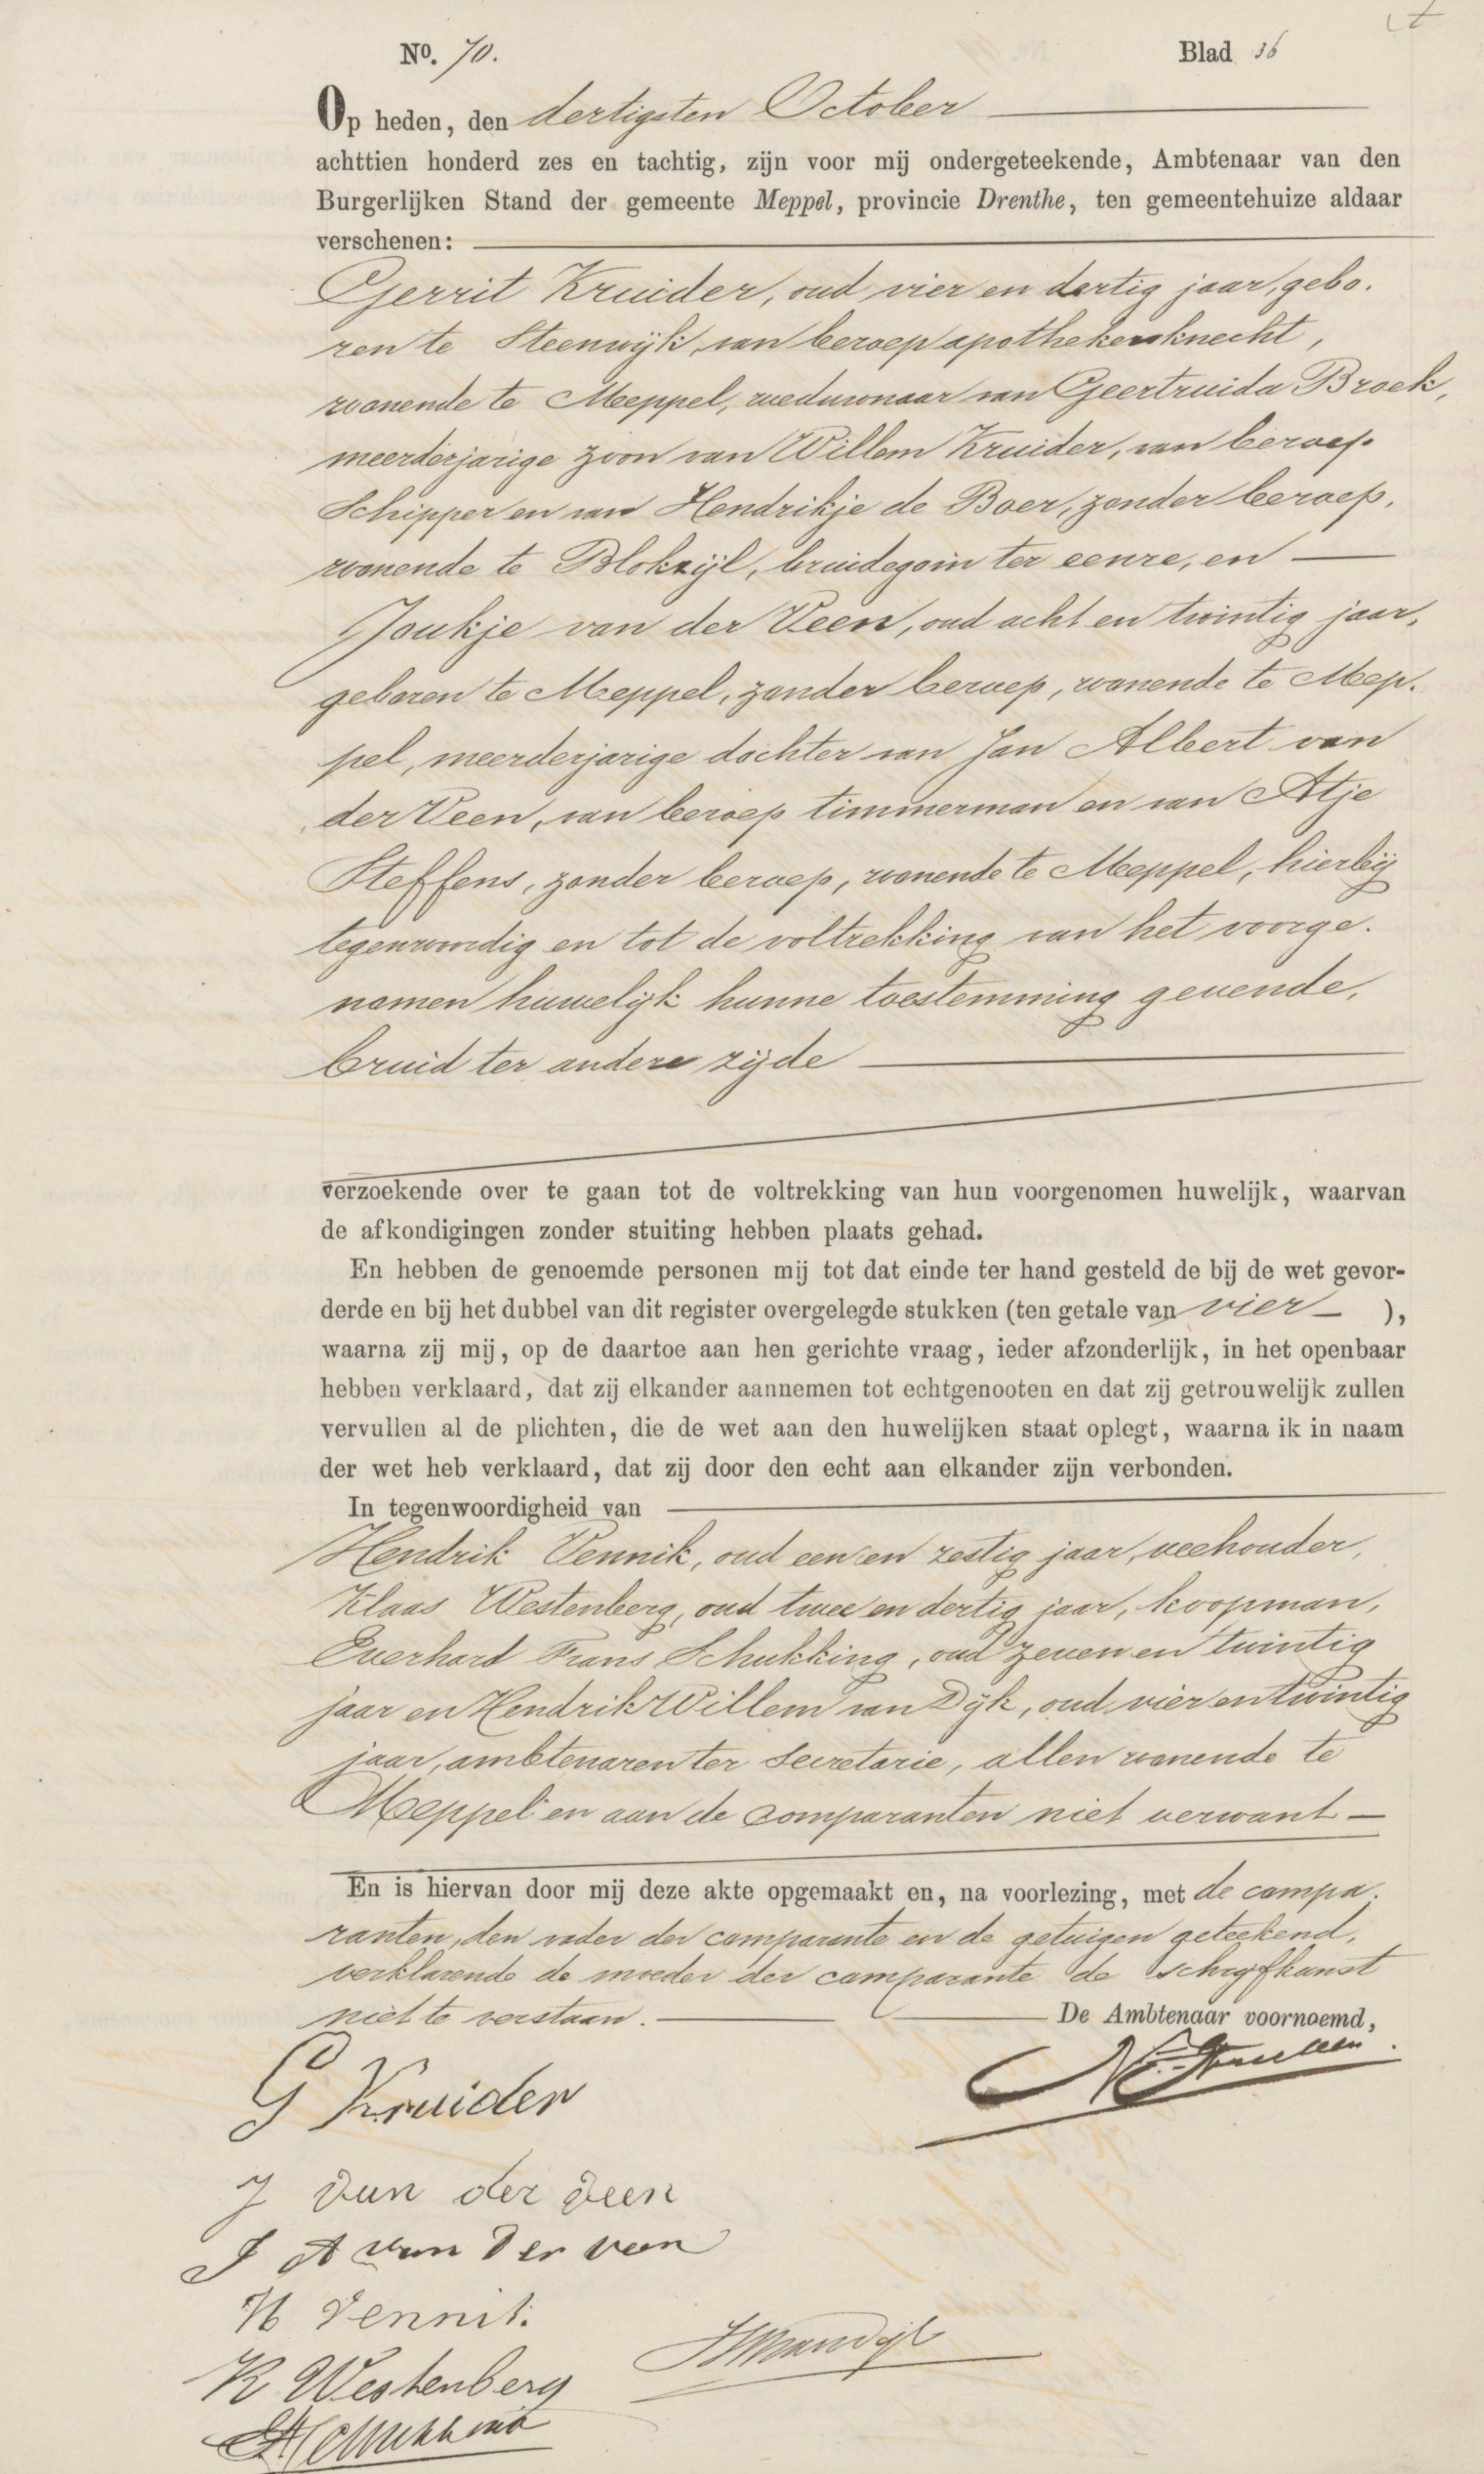 No. 70. Blad 36
Op heden, den dertigsten October
achttien honderd zes en tachtig, zijn voor mij ondergeteekende, Ambtenaar van den
Burgerlijken Stand der gemeente Meppel, provincie Drenthe, ten gemeentehuize aldaar
verschenen:
Gerrit Kruider, oud vier en dertig jaar, gebo-
ren te Steenwijk, van beroep apothekersknecht,
wonende te Meppel, weduwnaar van Geertruida Broek,
meerderjarige zoon van Willem Kruider, van beroep
Schipper en van Hendrikje de Boer, zonder beroep,
wonende te Blokzijl, bruidegom ter eenre, en
Joukje van der Veen, oud acht en twintig jaar,
geboren te Meppel, zonder beroep, wonende te Mep-
pel, meerderjarige dochter van Jan Albert van
der Veen, van beroep timmerman en van Atje
Steffens, zonder beroep, wonende te Meppel, hierbij
tegenwoordig en tot de voltrekking van het voorge-
nomen huwelijk hunne toestemming gevende,
bruid ter andere zijde
verzoekende over te gaan tot de voltrekking van hun voorgenomen huwelijk, waarvan
de afkondigingen zonder stuiting hebben plaats gehad.
En hebben de genoemde personen mij tot dat einde ter hand gesteld de bij de wet gevor-
derde en bij het dubbel van dit register overgelegde stukken (ten getale van vier ),
waarna zij mij, op de daartoe aan hen gerichte vraag, ieder afzonderlijk, in het openbaar
hebben verklaard, dat zij elkander aannemen tot echtgenooten en dat zij getrouwelijk zullen
vervullen al de plichten, die de wet aan den huwelijken staat oplegt, waarna ik in naam
der wet heb verklaard, dat zij door den echt aan elkander zijn verbonden.
In tegenwoordigheid van
Hendrik Vennik, oud een en zestig jaar, veehouder,
Klaas Westenberg, oud twee en dertig jaar, koopman,
Everhard Frans Schukking, oud zeven en twintig
jaar en Hendrik Willem van Dijk, oud vier en twintig
jaar, ambtenaren ter Secretarie, allen wonende te
Meppel en aan de comparanten niet verwant
En is hiervan door mij deze akte opgemaakt en, na voorlezing, met de compa-
ranten, den vader der comparante en de getuigen geteekend,
verklarende de moeder der comparante de schrijfkunst
niet te verstaan. De Ambtenaar voornoemd,
G Kruider
J van der Veen
J A van der veen
H Vennik.
HW van Dijk
K Westenberg
EF Schukking